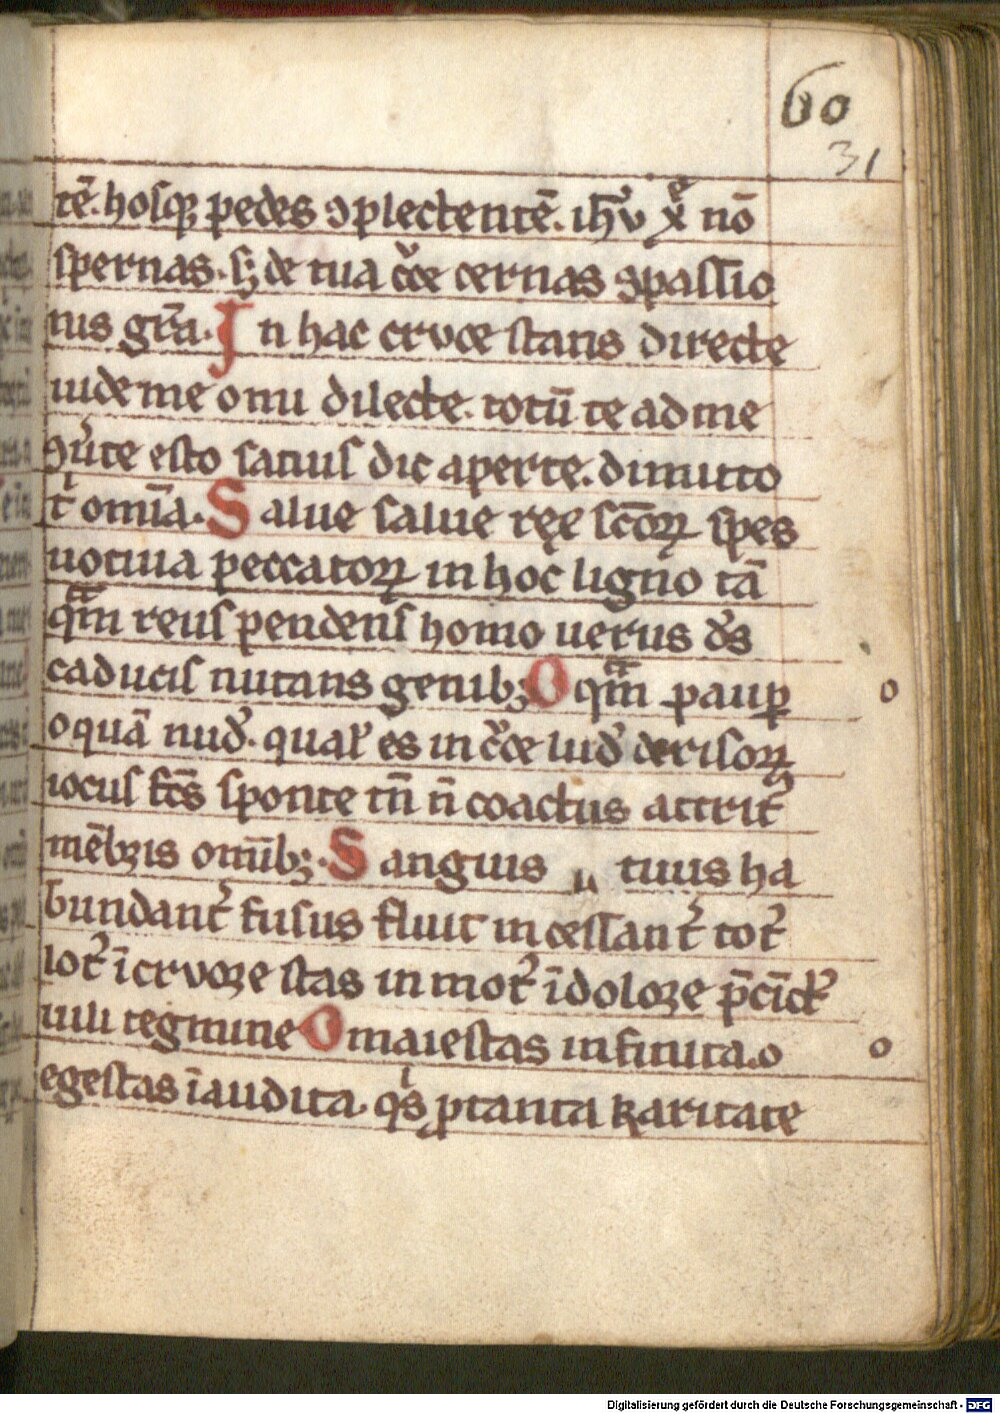 60
31
tē. hosq; pedes ꝯplectentē. ihū xp̄e nō
spernas. sꝫ de tua cͬce cernas ꝯpassio
nis gr̄a. In hac cruce stans directe
uide me o mi dilecte. totū te ad me
ꝯũte esto sanus dic aperte. dimitto
tⁱ om̄ia. Salue salue reę sc̄oꝝ spes
uotiua peccatoꝝ in hoc ligno tā
qͣm reus pendens homo uerus ds̄
caducis nutans genibꝫ O qͣm paup̲
o quā nudꝰ. qual' es in cͬce ludꝰ derisoꝝ
iocus fcs̄ sponte tn̄ n̄ coactus attritꝰ
mēbris om̄ibꝫ. Sanguis tuus ha
bundant᷑ fusus fluit incessant᷑ totꝰ
lotꝰ ī cruore stas in mot᷑ ī dolore p̄cīctꝰ
uili tegmine O maiestas infinita o
egestas īaudita. qⁱs ꝓ tanta karitate
o
o
Digitalisierung gefördert durch die Deutsche Forschungsgemeinschaft - DFG